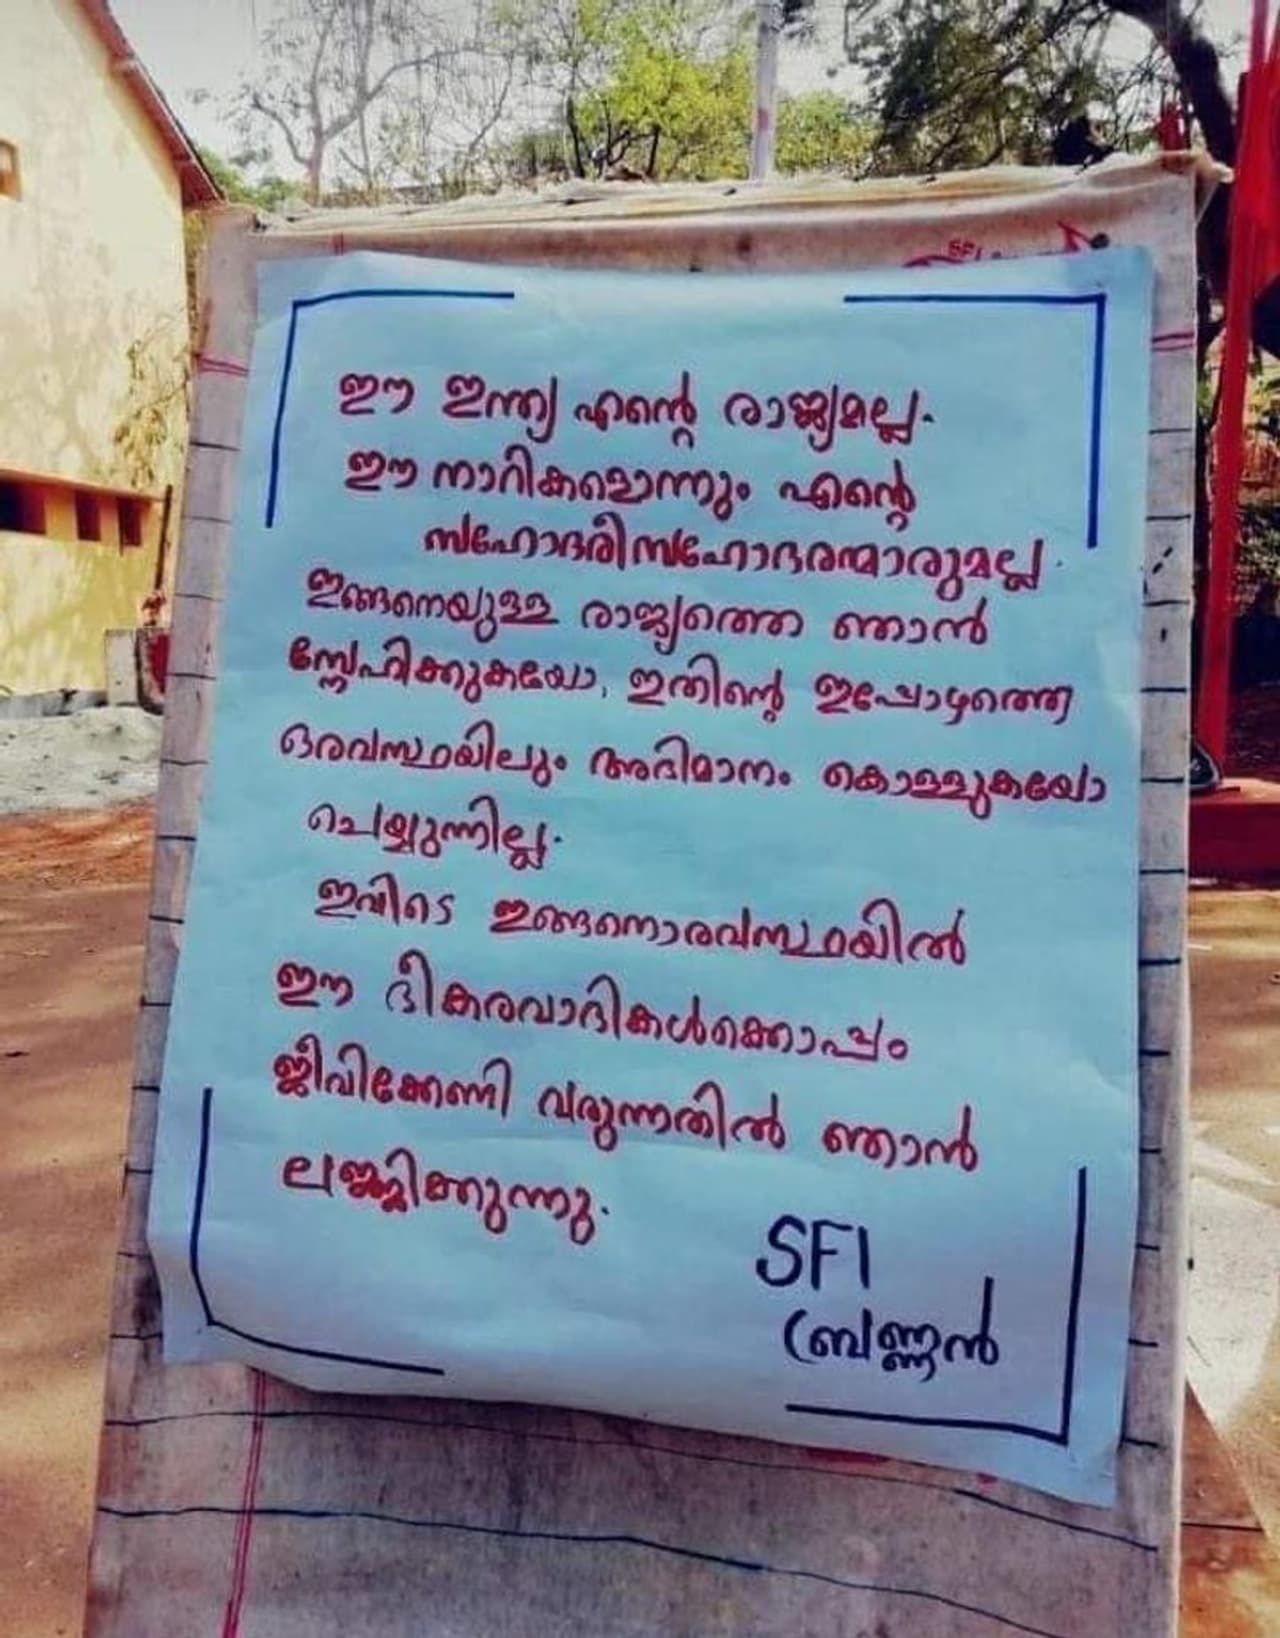 SFI
ഈ ഇന്ത്യ എന്റെ രാജ്യമല്ല.
ഈ നാറികളൊന്നും എന്റെ
സഹോദരീസഹോദരന്മാരുമല്ല.
ഇങ്ങനെയുള്ള രാജ്യത്തെ ഞാൻ
സ്നേഹിക്കുകയോ, ഇതിന്റെ ഇപ്പോഴത്തെ
ഒരവസ്ഥയിലും അഭിമാനം കൊള്ളുകയോ
ചെയ്യുന്നില്ല.
ഇവിടെ ഇങ്ങനൊരവസ്ഥയിൽ
ഈ ഭീകരവാദികൾക്കൊപ്പം
ജീവിക്കേണി വരുന്നതിൽ ഞാൻ
ലജ്ജിക്കുന്നു.
SFI
ബ്രണ്ണൻ